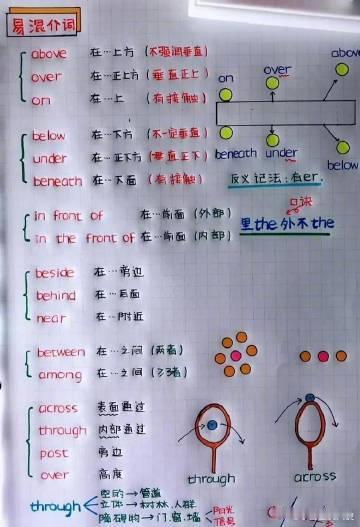 易混介词
above 在…上方 (不强调垂直)
over 在…正上方 (垂直正上)
on 在…上 (有接触)
on over above
below 在…下方 (不一定垂直)
under 在…正下方 (垂直正下)
beneath 在…下面 (有接触)
beneath under below
反义记法:有er.
in front of 在…前面 (外部)
in the front of 在…前面 (内部)
口诀
里the外不the
beside 在…旁边
behind 在…后面
near 在…附近
between 在…之间 (两者)
among 在…之间 (≥3者)
across 表面通过
through 内部通过
past 旁边
over 高度
through across
through 空的→管道
立体→树林.人群
障碍物→门.窗.墙
阳光
信号